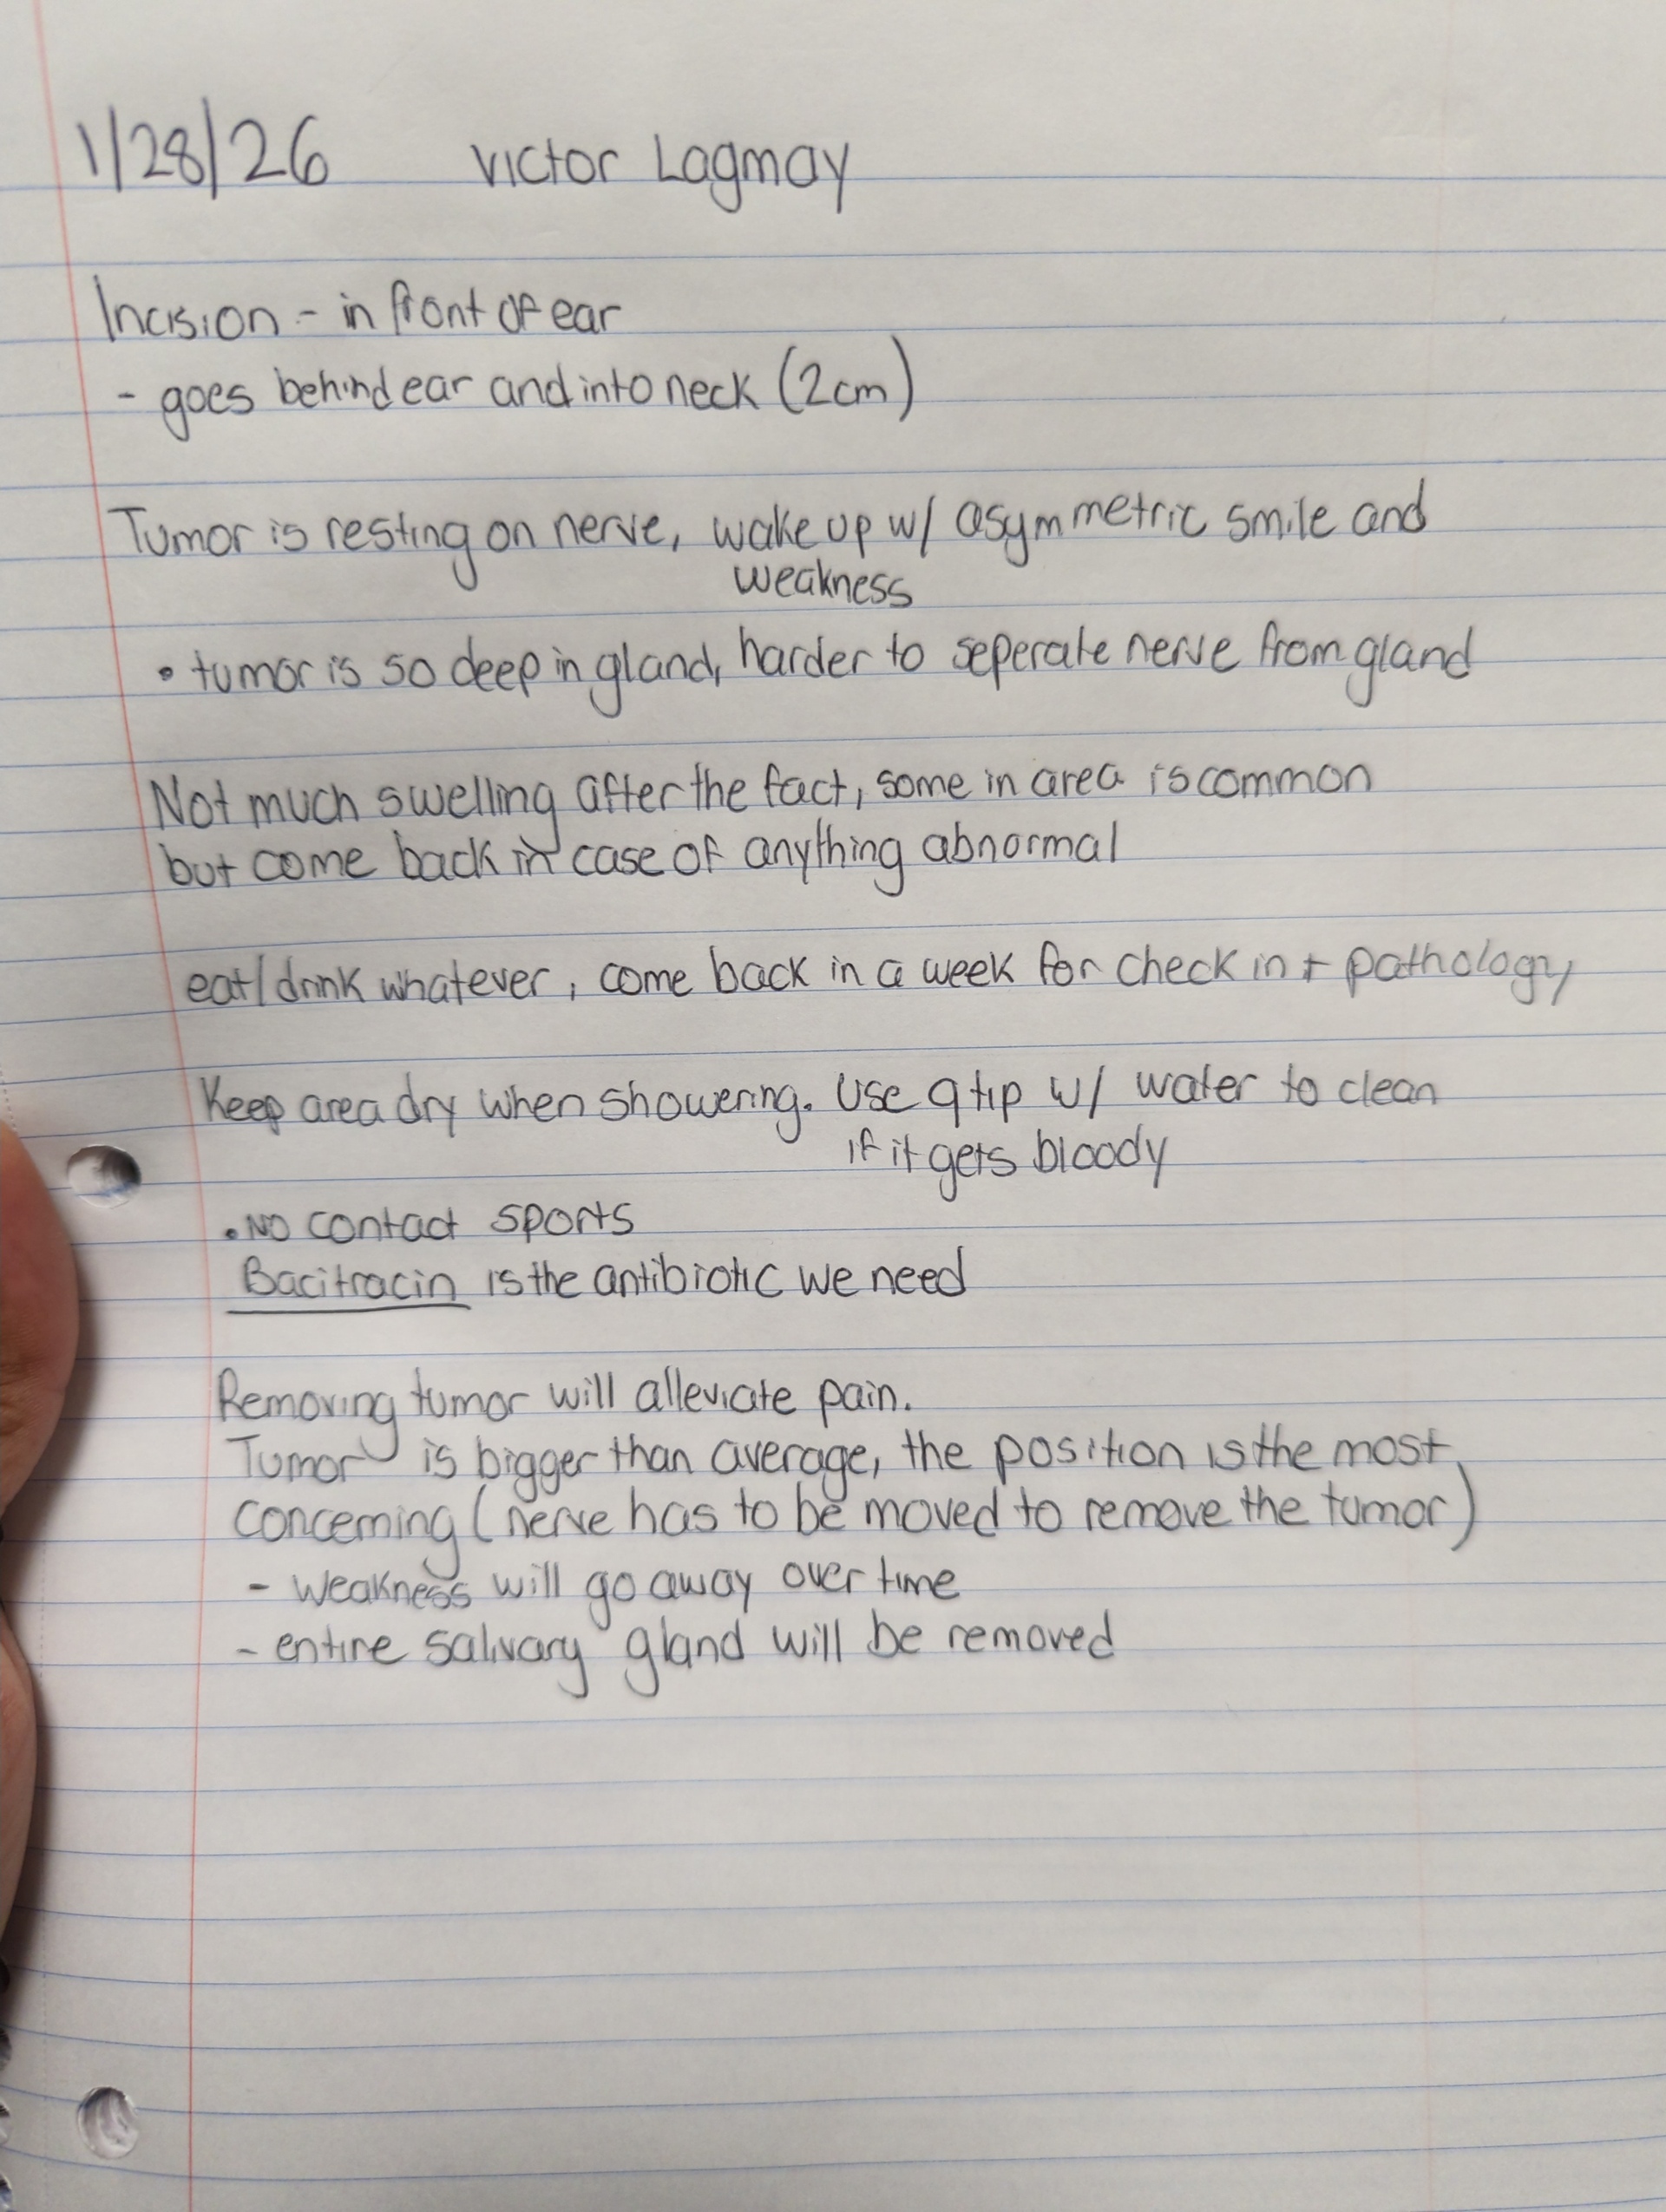 1/28/26 Victor Lagmay
Incision - in front of ear
- goes behind ear and into neck (2cm)
Tumor is resting on nerve, wake up w/ asymmetric smile and
weakness
• tumor is so deep in gland, harder to seperate nerve from gland
Not much swelling after the fact, some in area is common
but come back in case of anything abnormal
eat/drink whatever, come back in a week for check in + pathology
Keep area dry when showering. Use q tip w/ water to clean
if it gets bloody
• No contact sports
Bacitracin is the antibiotic we need
Removing tumor will alleviate pain.
Tumor is bigger than average, the position is the most
concerning (nerve has to be moved to remove the tumor)
- weakness will go away over time
- entire salivary gland will be removed